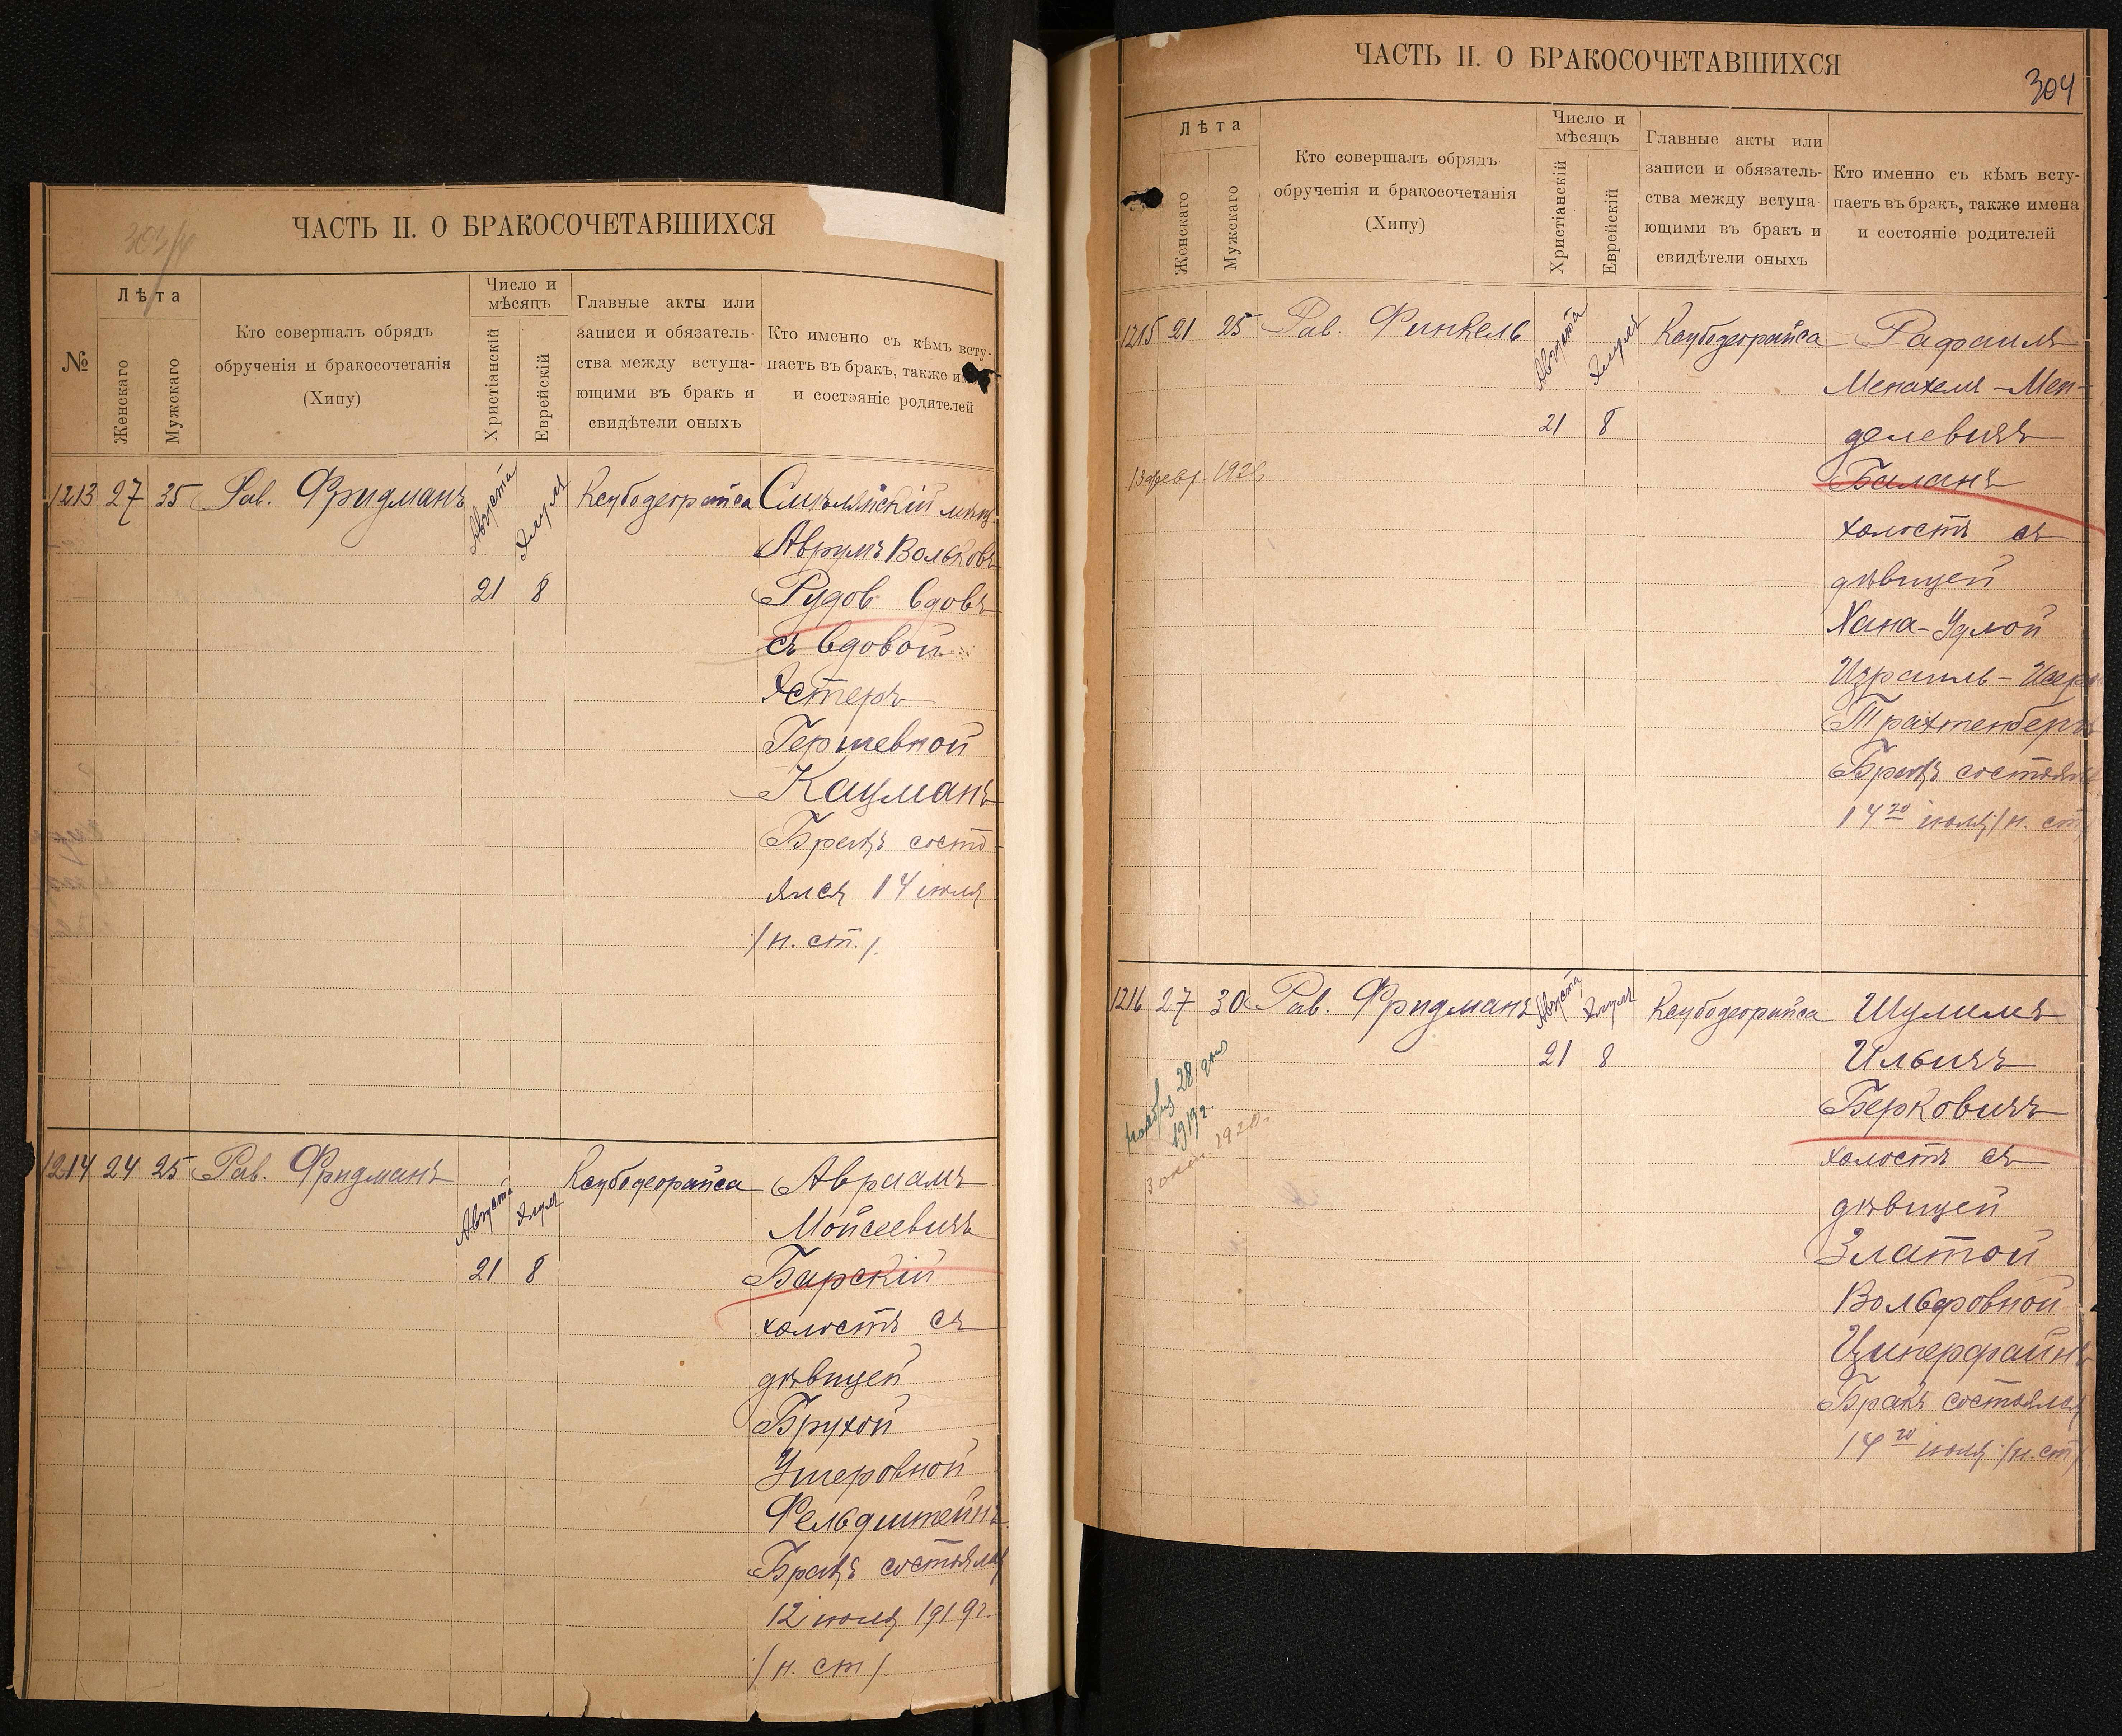 ЧАСТЬ II. О БРАКОСОЧЕТАВШИХСЯ
№
Лѣта
Женскаго
Мужскаго
Кто совершалъ обрядъ
обрученія и бракосочетанія
(Хипу)
Число и
мѣсяцъ
Христіанскій
Еврейскій
Главные акты или
записи и обязатель-
ства между вступа-
ющими въ бракъ и
свидѣтели оныхъ
Кто именно съ кѣмъ всту-
паетъ въ бракъ, также
и состояніе родителей
1213 27 35 Рав. Фридманъ Августа Элуля Ксубодеорайса Смѣлянскій мѣщ.
Аврумъ Вольковъ
21 8 Рудов вдовъ
съ вдовой
Эстеръ
Гершевной
Кацманъ
Бракъ состо-
ялся 14 июля
/н. ст./
1214 24 25 Рав. Фридманъ Августа Элуля Ксубодеорайса Авраамъ
Мойсеевичъ
21 8 Барскій
холостъ съ
дѣвицей
Брухой
Ушеровной
Фельдштейнъ
Бракъ состоялся
12 июля 1919г.
/н. ст/
ЧАСТЬ II. О БРАКОСОЧЕТАВШИХСЯ
304
Лѣта
Женскаго
Мужскаго
Кто совершалъ обрядъ
обрученія и бракосочетанія
(Хипу)
Число и
мѣсяцъ
Христіанскій
Еврейскій
Главные акты или
записи и обязатель-
ства между вступа
ющими въ бракъ и
свидѣтели оныхъ
Кто именно съ кѣмъ всту-
паетъ въ бракъ, также имена
и состояніе родителей
1215 21 25 Рав. Финкель Августа Элуля Ксубодеорайса Рафаилъ
Менахемъ-Мен-
21 8 делевичъ
13 февр. Баланъ
холостъ съ
дѣвицей
Хана-Удлой
Израиль-
Трахтенбергъ
Бракъ состоялся
14го июля /н. ст
1216 27 30 Рав. Фридманъ Августа Элуля Ксубодеорайса Шулимъ
21 8 Ильичъ
Берковичъ
ноября 28 дня
1919г.
1920г.
холостъ съ
дѣвицей
Златой
Вольфовной
Циперфайнъ
Бракъ состоялся
14го июля /н. ст/